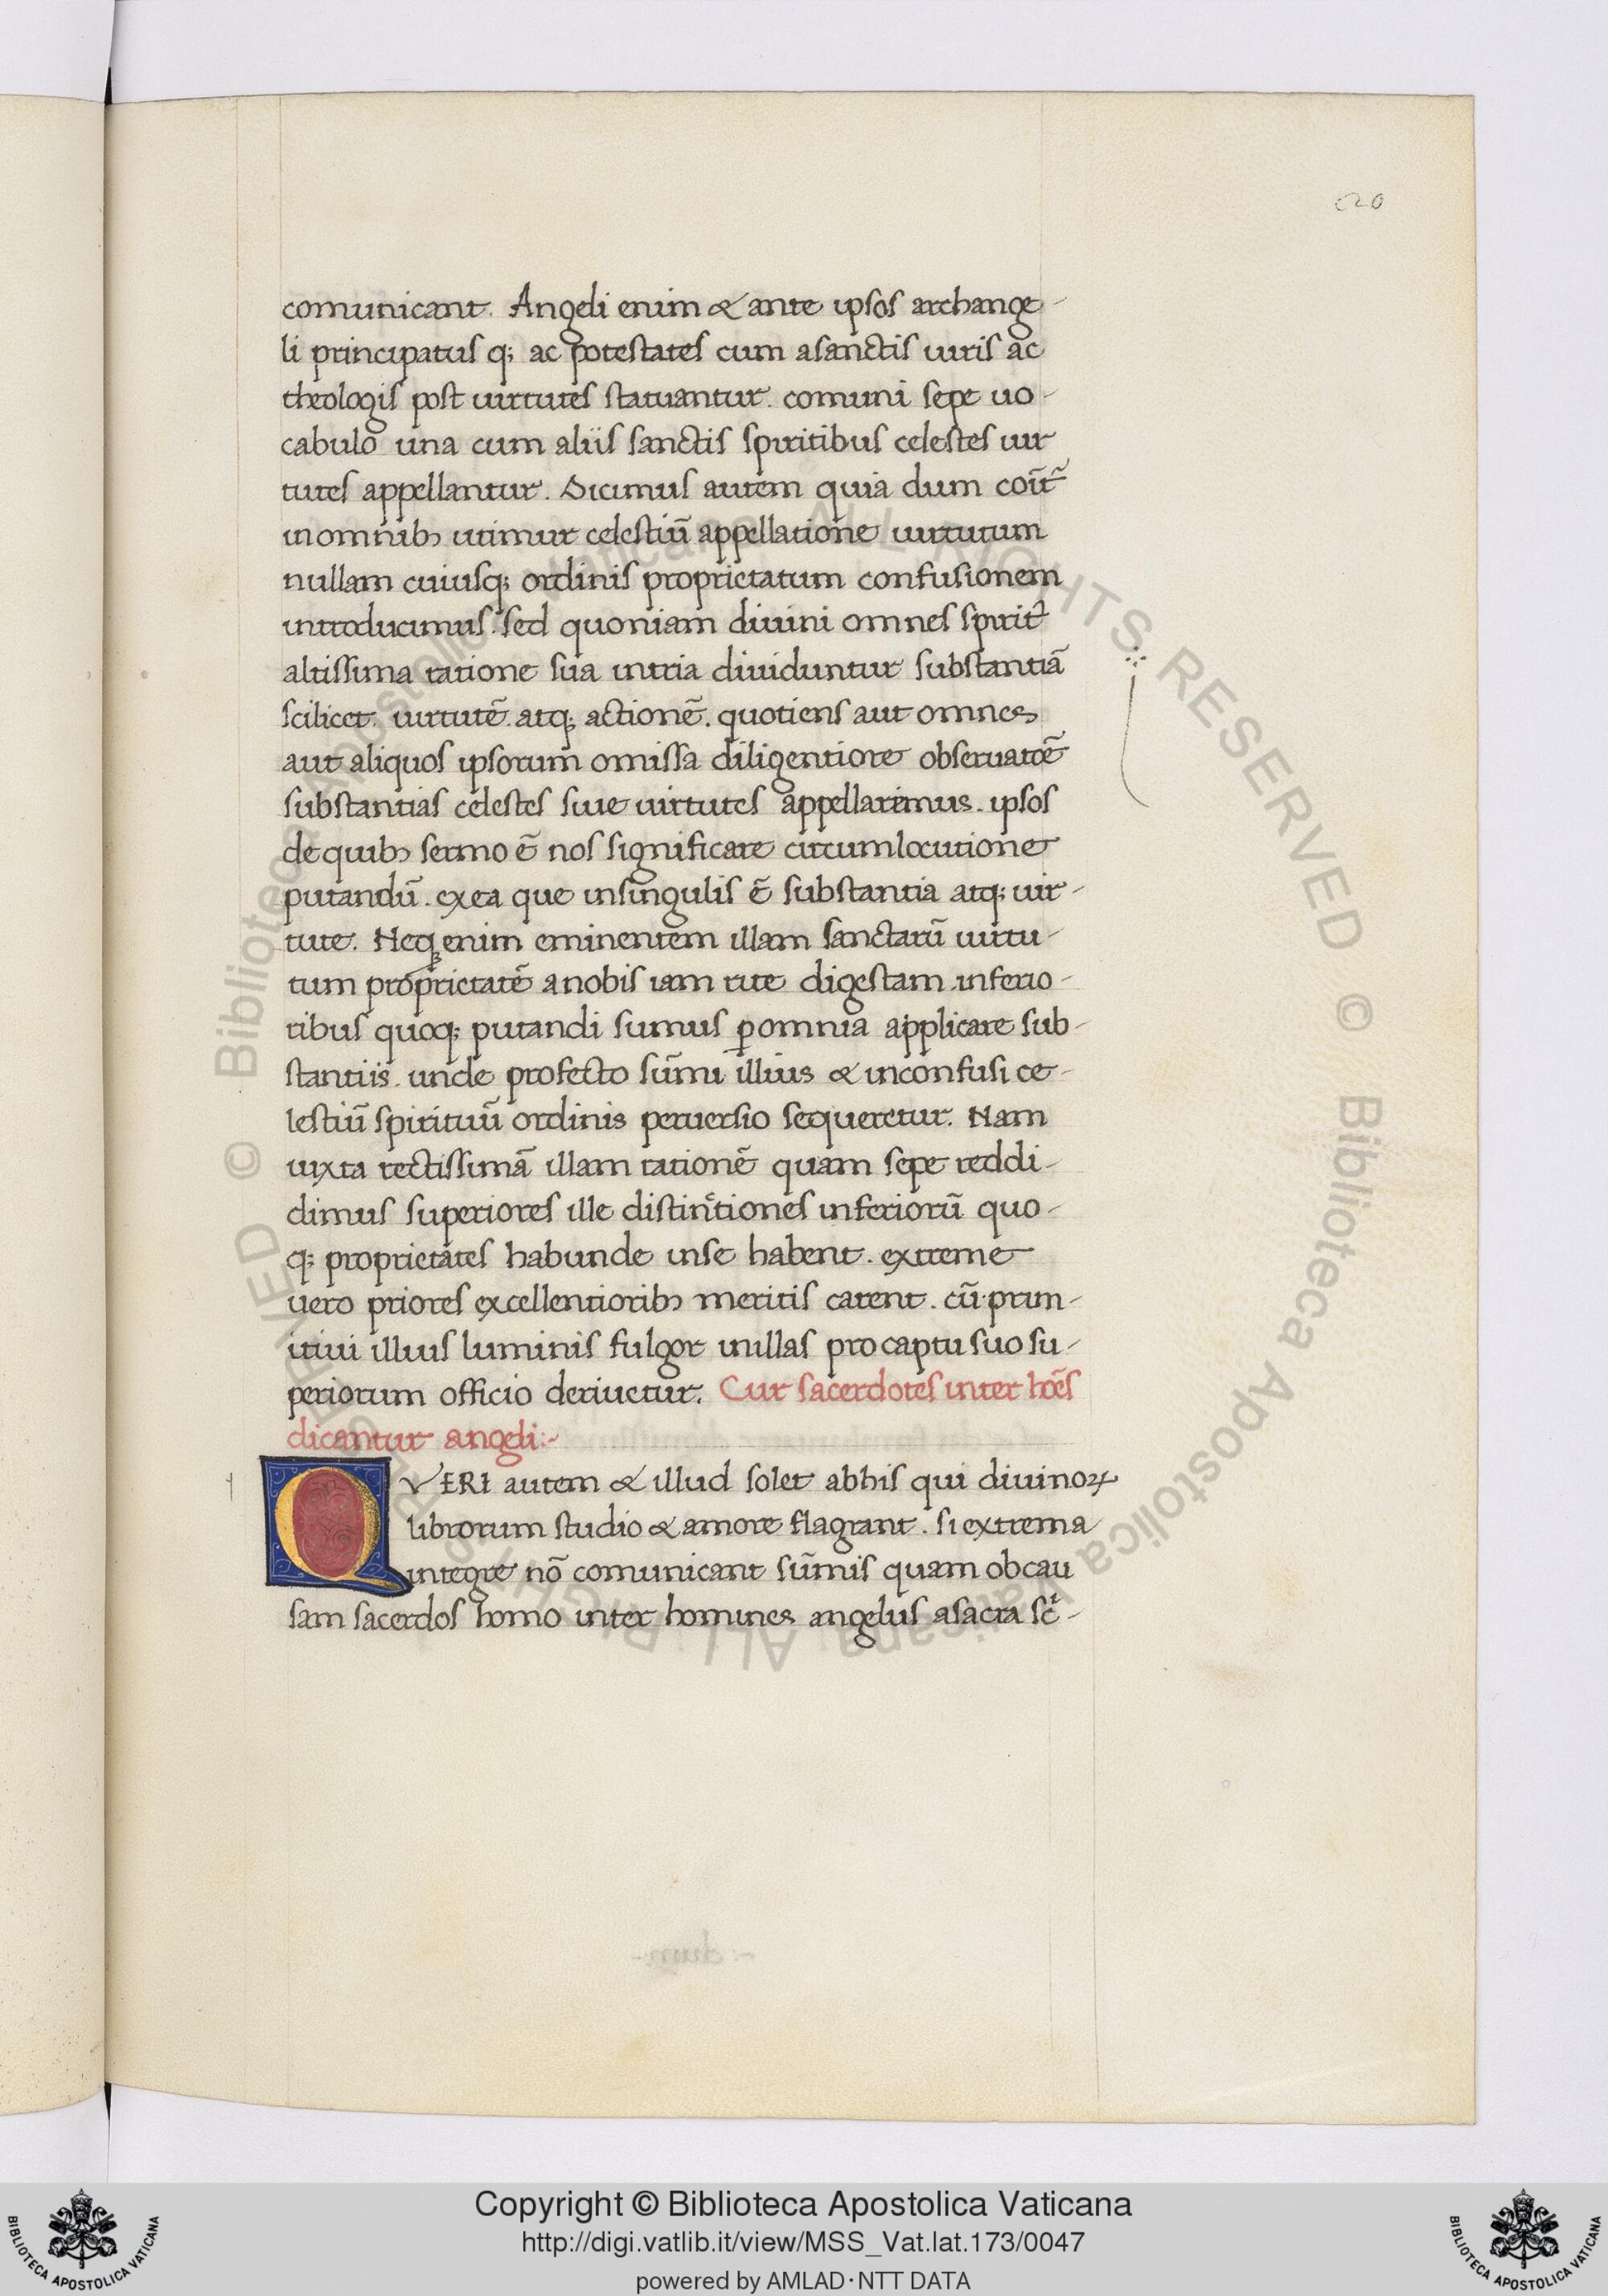 20
comunicant. Angeli enim & ante ipsos archange-
li principatus q; ac potestates cum asanctis uiris ac
theologis post uirtutes statuantur. comuni sepe uo-
cabulo una cum aliis sanctis spiritibus celestes uir
tutes appellantur. Dicimus autem quia dum coīt̄
inomnibꝫ utimur celestiū appellatione uirtutum
nullam cuiusq; ordinis proprietatum confusionem
introducimus. sed quoniam diuini omnes spirit᾽
altissima ratione sua intria diuiduntur substantiā
scilicet. uirtutē. atq; actionē. quotiens aut omnes
aut aliquos ipsorum omissa diligentiore obseruatōē
substantias celestes siue uirtutes appellaremus. ipsos
dequibꝫ sermo ē nos significare circumlocutione
putandū. exea que insingulis ē substantia atq; uir-
tute. Neq; enim eminentem illam sanctarū uirtu-
tum proprietatē anobis iam rite digestam inferio-
ribus quoq; putandi sumus ꝑomnia applicare sub-
stantiis. unde profecto sūmi illius & inconfusi ce-
lestiū spirituū ordinis peruersio sequeretur. Nam
iuxta rectissimā illam rationē quam sepe reddi-
dimus superiores ille distinctiones inferiorū quo-
q; proprietates habunde inse habent. extreme
uero priores excellentioribꝫ meritis carent. cū prim-
itiui illius luminis fulgor inillas procaptu suo su-
periorum officio deriuetur. Cur sacerdotes inter hōēs
dicantur angeli:-
QVERI autem & illud solet abhis qui diuinoꝝ
librorum studio & amore flagrant. si extrema
integre nō comunicant sūmis quam obcau
sam sacerdos homo inter homines angelus asacra sc̄-
© Biblioteca Apostolica Vaticana ALL RIGHTS RESERVED © Biblioteca Apostolica Vaticana ALL RIGHTS RESERVED
Copyright © Biblioteca Apostolica Vaticana
http://digi.vatlib.it/view/MSS_Vat.lat.173/0047
powered by AMLAD·NTT DATA
BIBLIOTECA APOSTOLICA VATICANA
BIBLIOTECA APOSTOLICA VATICANA